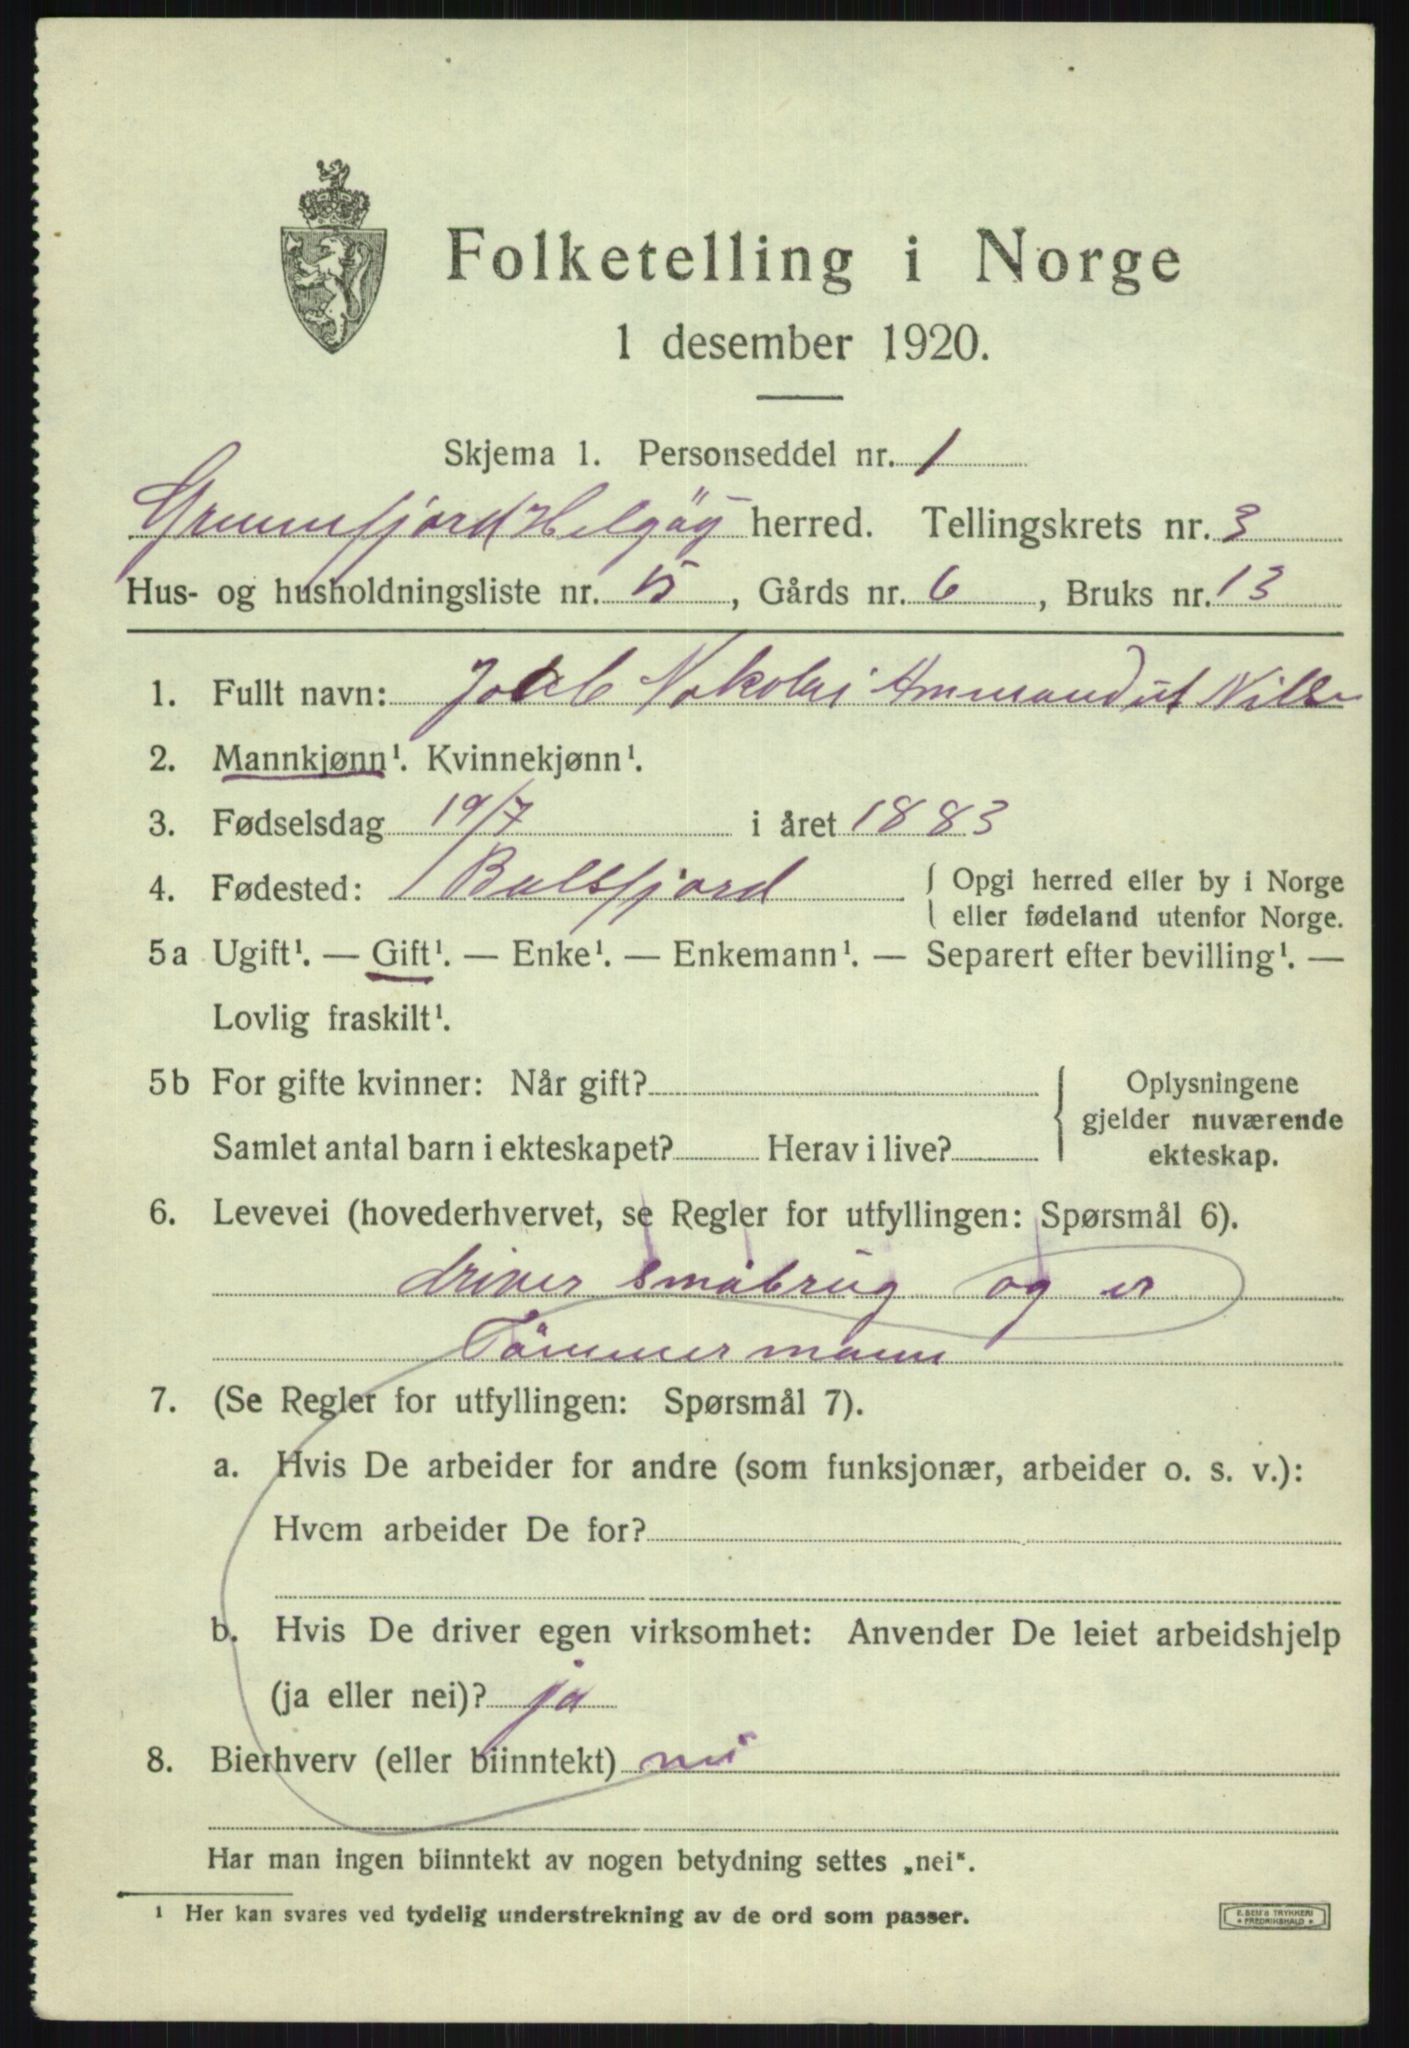 Folketelling i Norge
1 desember 1920.
Skjema 1. Personseddel nr. 1
Helgøy herred. Tellingskrets nr. 3
Hus- og husholdningsliste nr. 15, Gårds nr. 6, Bruks nr. 13
1. Fullt navn: Nikolai
2. Mannkjønn¹. Kvinnekjønn¹.
3. Fødselsdag 19/7 i året 1883
4. Fødested: Balsfjord { Opgi herred eller by i Norge
eller fødeland utenfor Norge.
5a Ugift¹. — Gift¹. — Enke¹. — Enkemann¹. — Separert efter bevilling¹. —
Lovlig fraskilt¹.
5b For gifte kvinner: Når gift?
Samlet antal barn i ekteskapet? Herav i live?
Oplysningene
gjelder nuværende
ekteskap.
6. Levevei (hovederhvervet, se Regler for utfyllingen: Spørsmål 6).
driver småbrug og er
Tömmermann
7. (Se Regler for utfyllingen: Spørsmål 7).
a. Hvis De arbeider for andre (som funksjonær, arbeider o. s. v.):
Hvem arbeider De for?
b. Hvis De driver egen virksomhet: Anvender De leiet arbeidshjelp
(ja eller nei)? ja
8. Bierhverv (eller biinntekt) nei
Har man ingen biinntekt av nogen betydning settes „nei“.
¹ Her kan svares ved tydelig understrekning av de ord som passer.
E. SEM'S TRYKKERI
* FREDRIKSHALD *